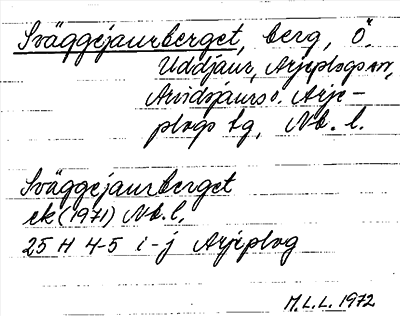 Sväggejaurberget, berg, Ö.
Uddjaur, Arjeplogs sn,
Arvidsjaurs o. Arje-
plogs tg, Nb. l.
Sväggejaurberget
ek (1971) Nb. l.
25 H 4-5 i-j Arjeplog
M.L.L. 1972